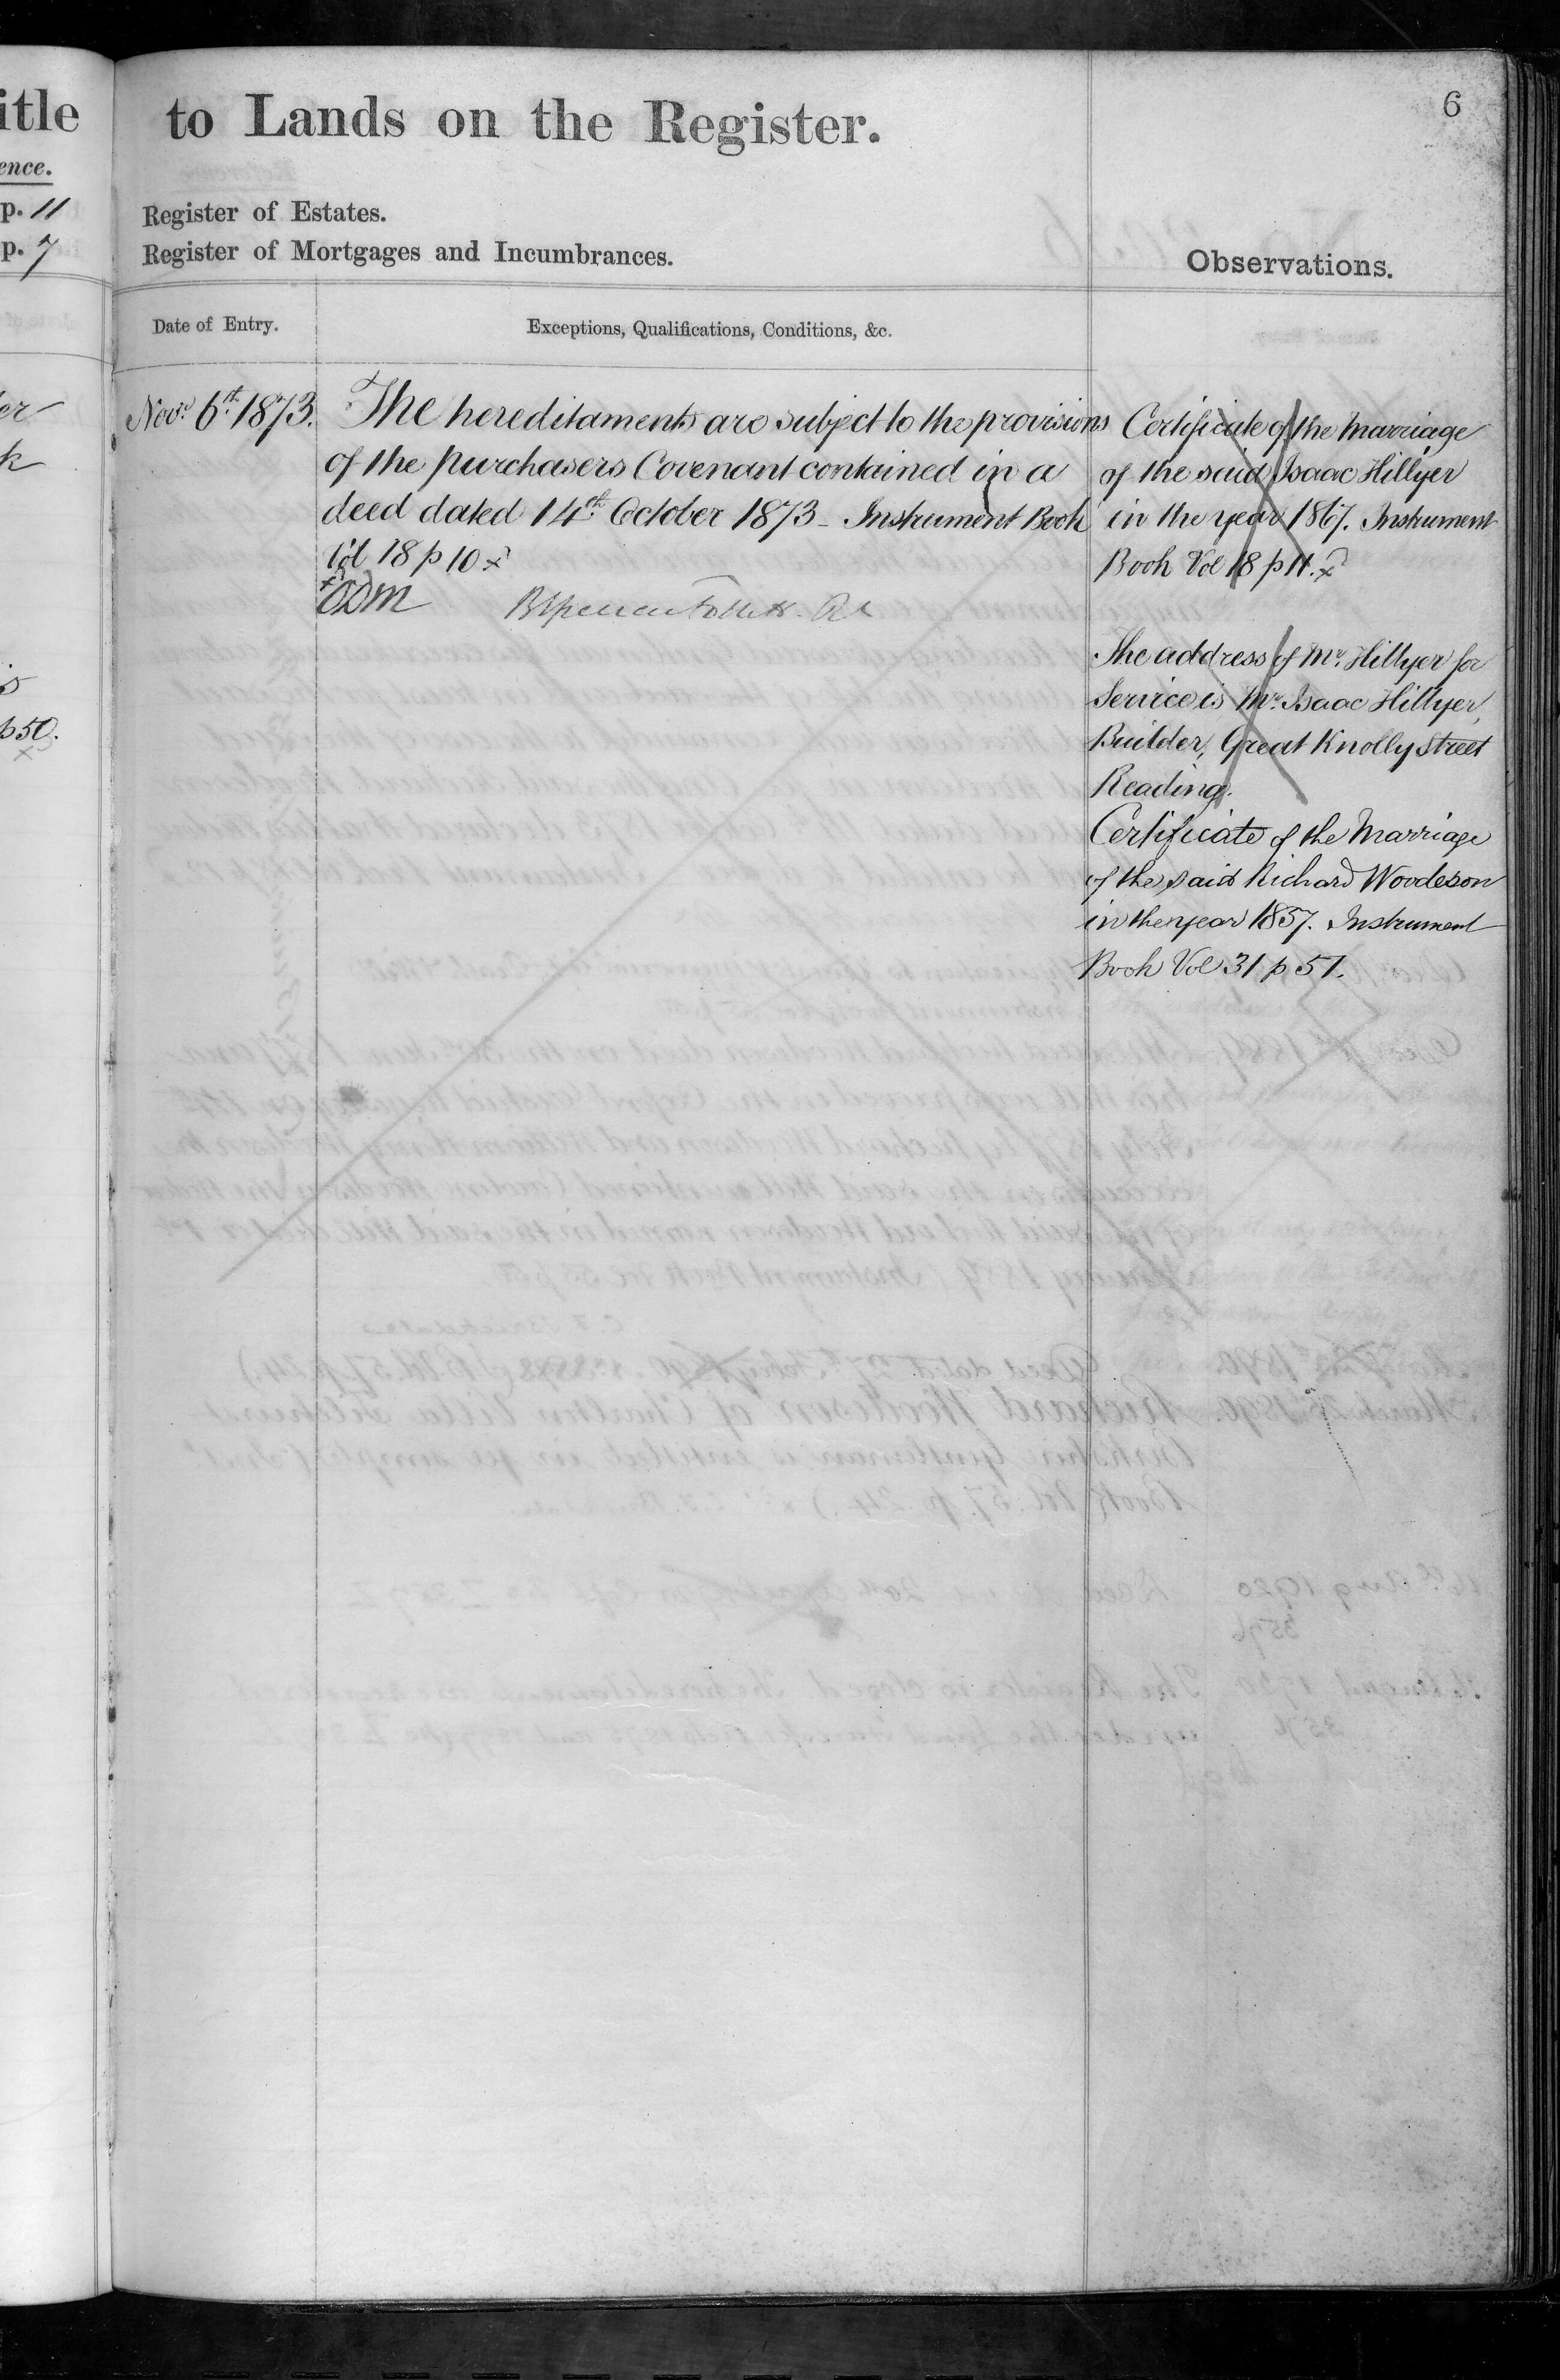 itle
ence.
p. 11
p. 7
er
k
p50.
to Lands on the Register.
6
Register of Estates.
Register of Mortgages and Incumbrances.
Observations.
Date of Entry.
Exceptions, Qualifications, Conditions, &c.
Novr. 6th. 1873.
The hereditaments are subject to the provisions
of the purchasers Covenant contained in a
deed dated 14th. October 1873 - Instrument Book
Vol 18 p 10 x
Certificate of the Marriage
of the said Isaac Hillyer
in the year 1867. Instrument
Book Vol 18 p 11. x
The address of Mr. Hillyer for
Service is Mr. Isaac Hillyer,
Builder, Great Knolly Street
Reading.
Certificate of the Marriage
of the said Richard Woodeson
in the year 1857. Instrument
Book Vol 31 p 51.